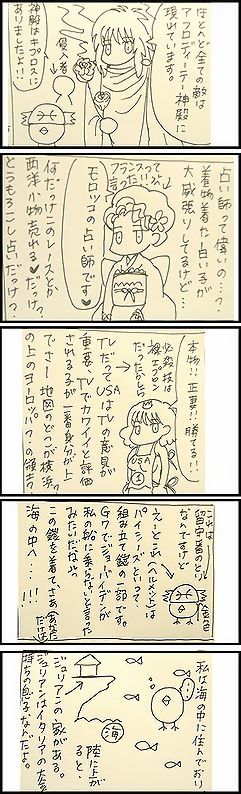 ほとんど全ての敵は
アフロディーテー神殿に
現れています。
侵入者
神殿はキプロスに
ありましたよ!!
占い師って偉いの…?
着物着た白い子が
大威張りしてるけど…
フランスって
言った!!
モロッコの
占い師です♥
何だっけこのレースとか
西洋小物売れる♥だっけ?
とうもろこし占いだっけ?
本物!!正妻!!勝てる!!
必殺技は
裸エプロン
だったかしら
USA
TVだってUSAはTVの意見が
重要、TVでカワイイと評価
される子が一番身分が上
でさー地図のどこが横浜っ
の上のヨーロッパっつの領土?
これは
留守番のと
なんですけど
金色
えーとこれ(ヘルメット)は
パイシーズといって
組み立て鎧の一部です。
G7でジョーバイデンが
私の船に乗らないと言った
みたいだな…
この鎧を着て、さあ(あなた
だけは)
海の中へ…!!!
私は海の中に住んでおり
海
陸に上が
ると、
ジュリアンの家がある。
ジュリアンはイタリアの大金
持ちの息子なんだよ。